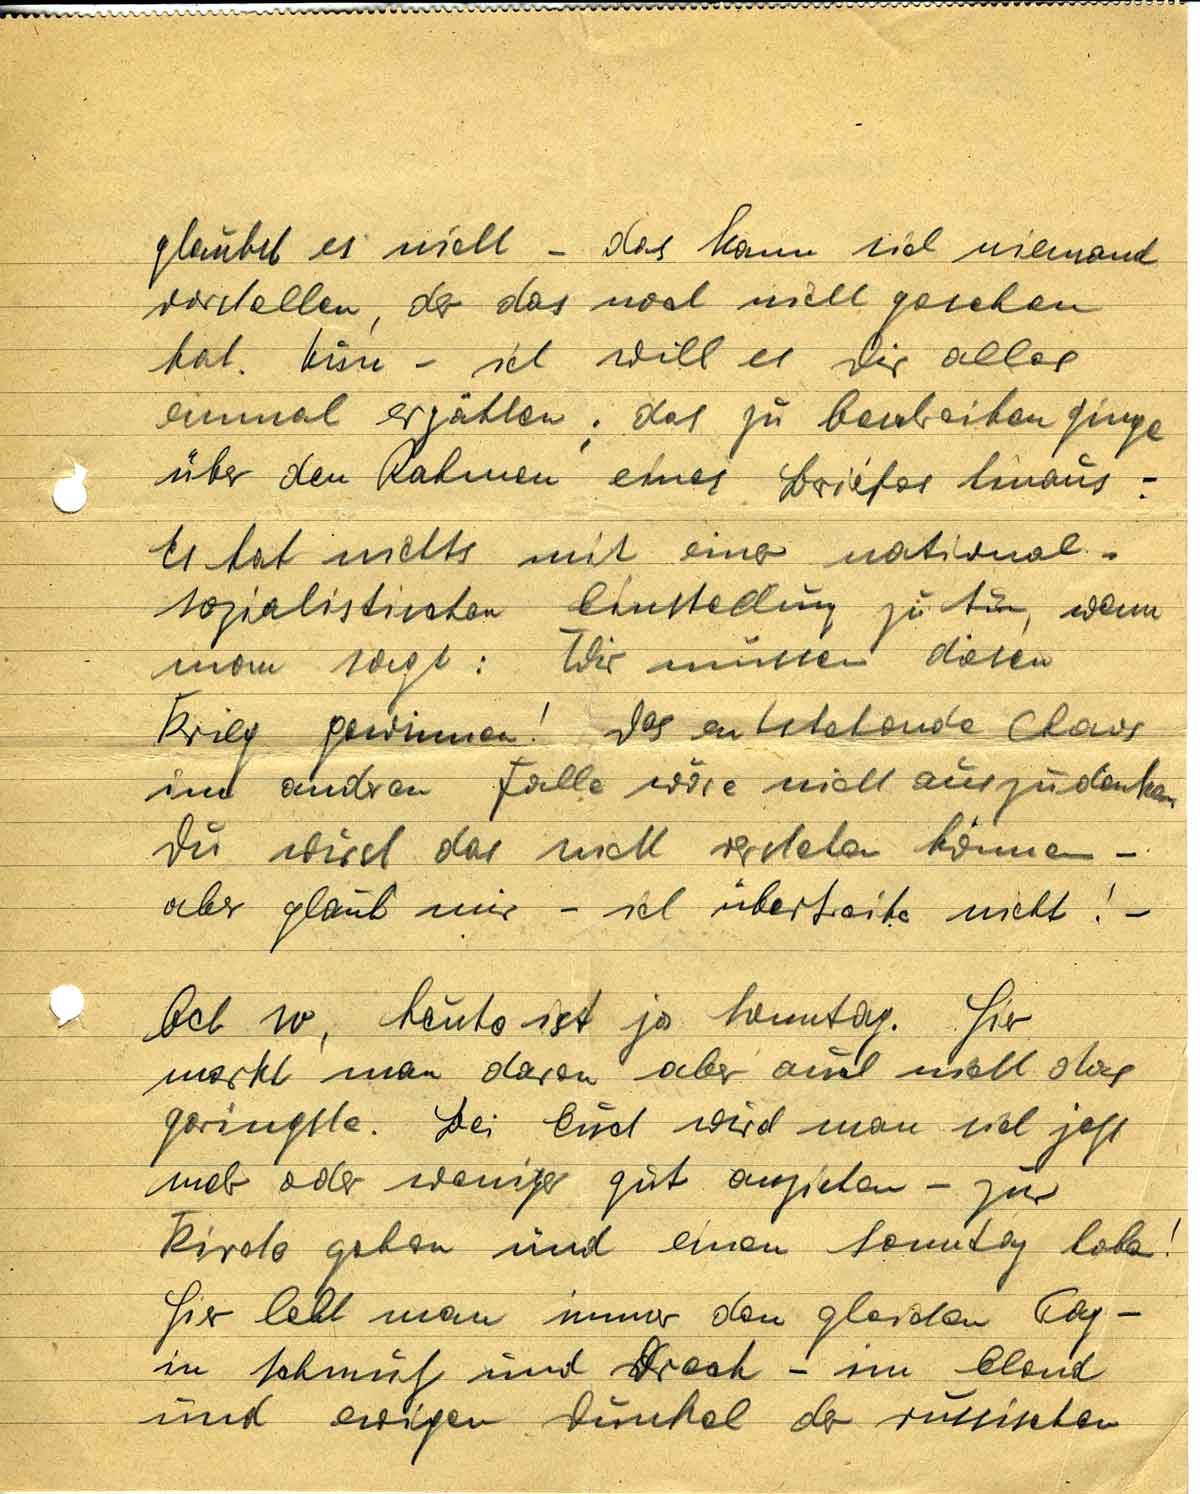 glaubst es nicht – das kann sich niemand
vorstellen, der das noch nicht gesehen
hat. Nun – ich will es Dir alles
einmal erzählen; das zu beschreiben ginge
über den Rahmen eines Briefes hinaus –
Es hat nichts mit einer national-
sozialistischen Einstellung zu tun, wenn
man sagt: Wir müssen diesen
Krieg gewinnen! Das entstehende Chaos
im andren Falle wäre nicht auszudenken
Du wirst das nicht verstehen können –
aber glaub mir – ich übertreibe nicht! –
Ach so, heute ist ja Sonntag. Hier
merkt man daran aber auch nicht das
geringste. Bei Euch wird man sich jetzt
mehr oder weniger gut anziehen – zur
Kirche gehen und einen Sonntag haben!
Hier lebt man immer den gleichen Tag –
in Schmutz und Dreck – im Elend
und ewigen Dunkel der russischen